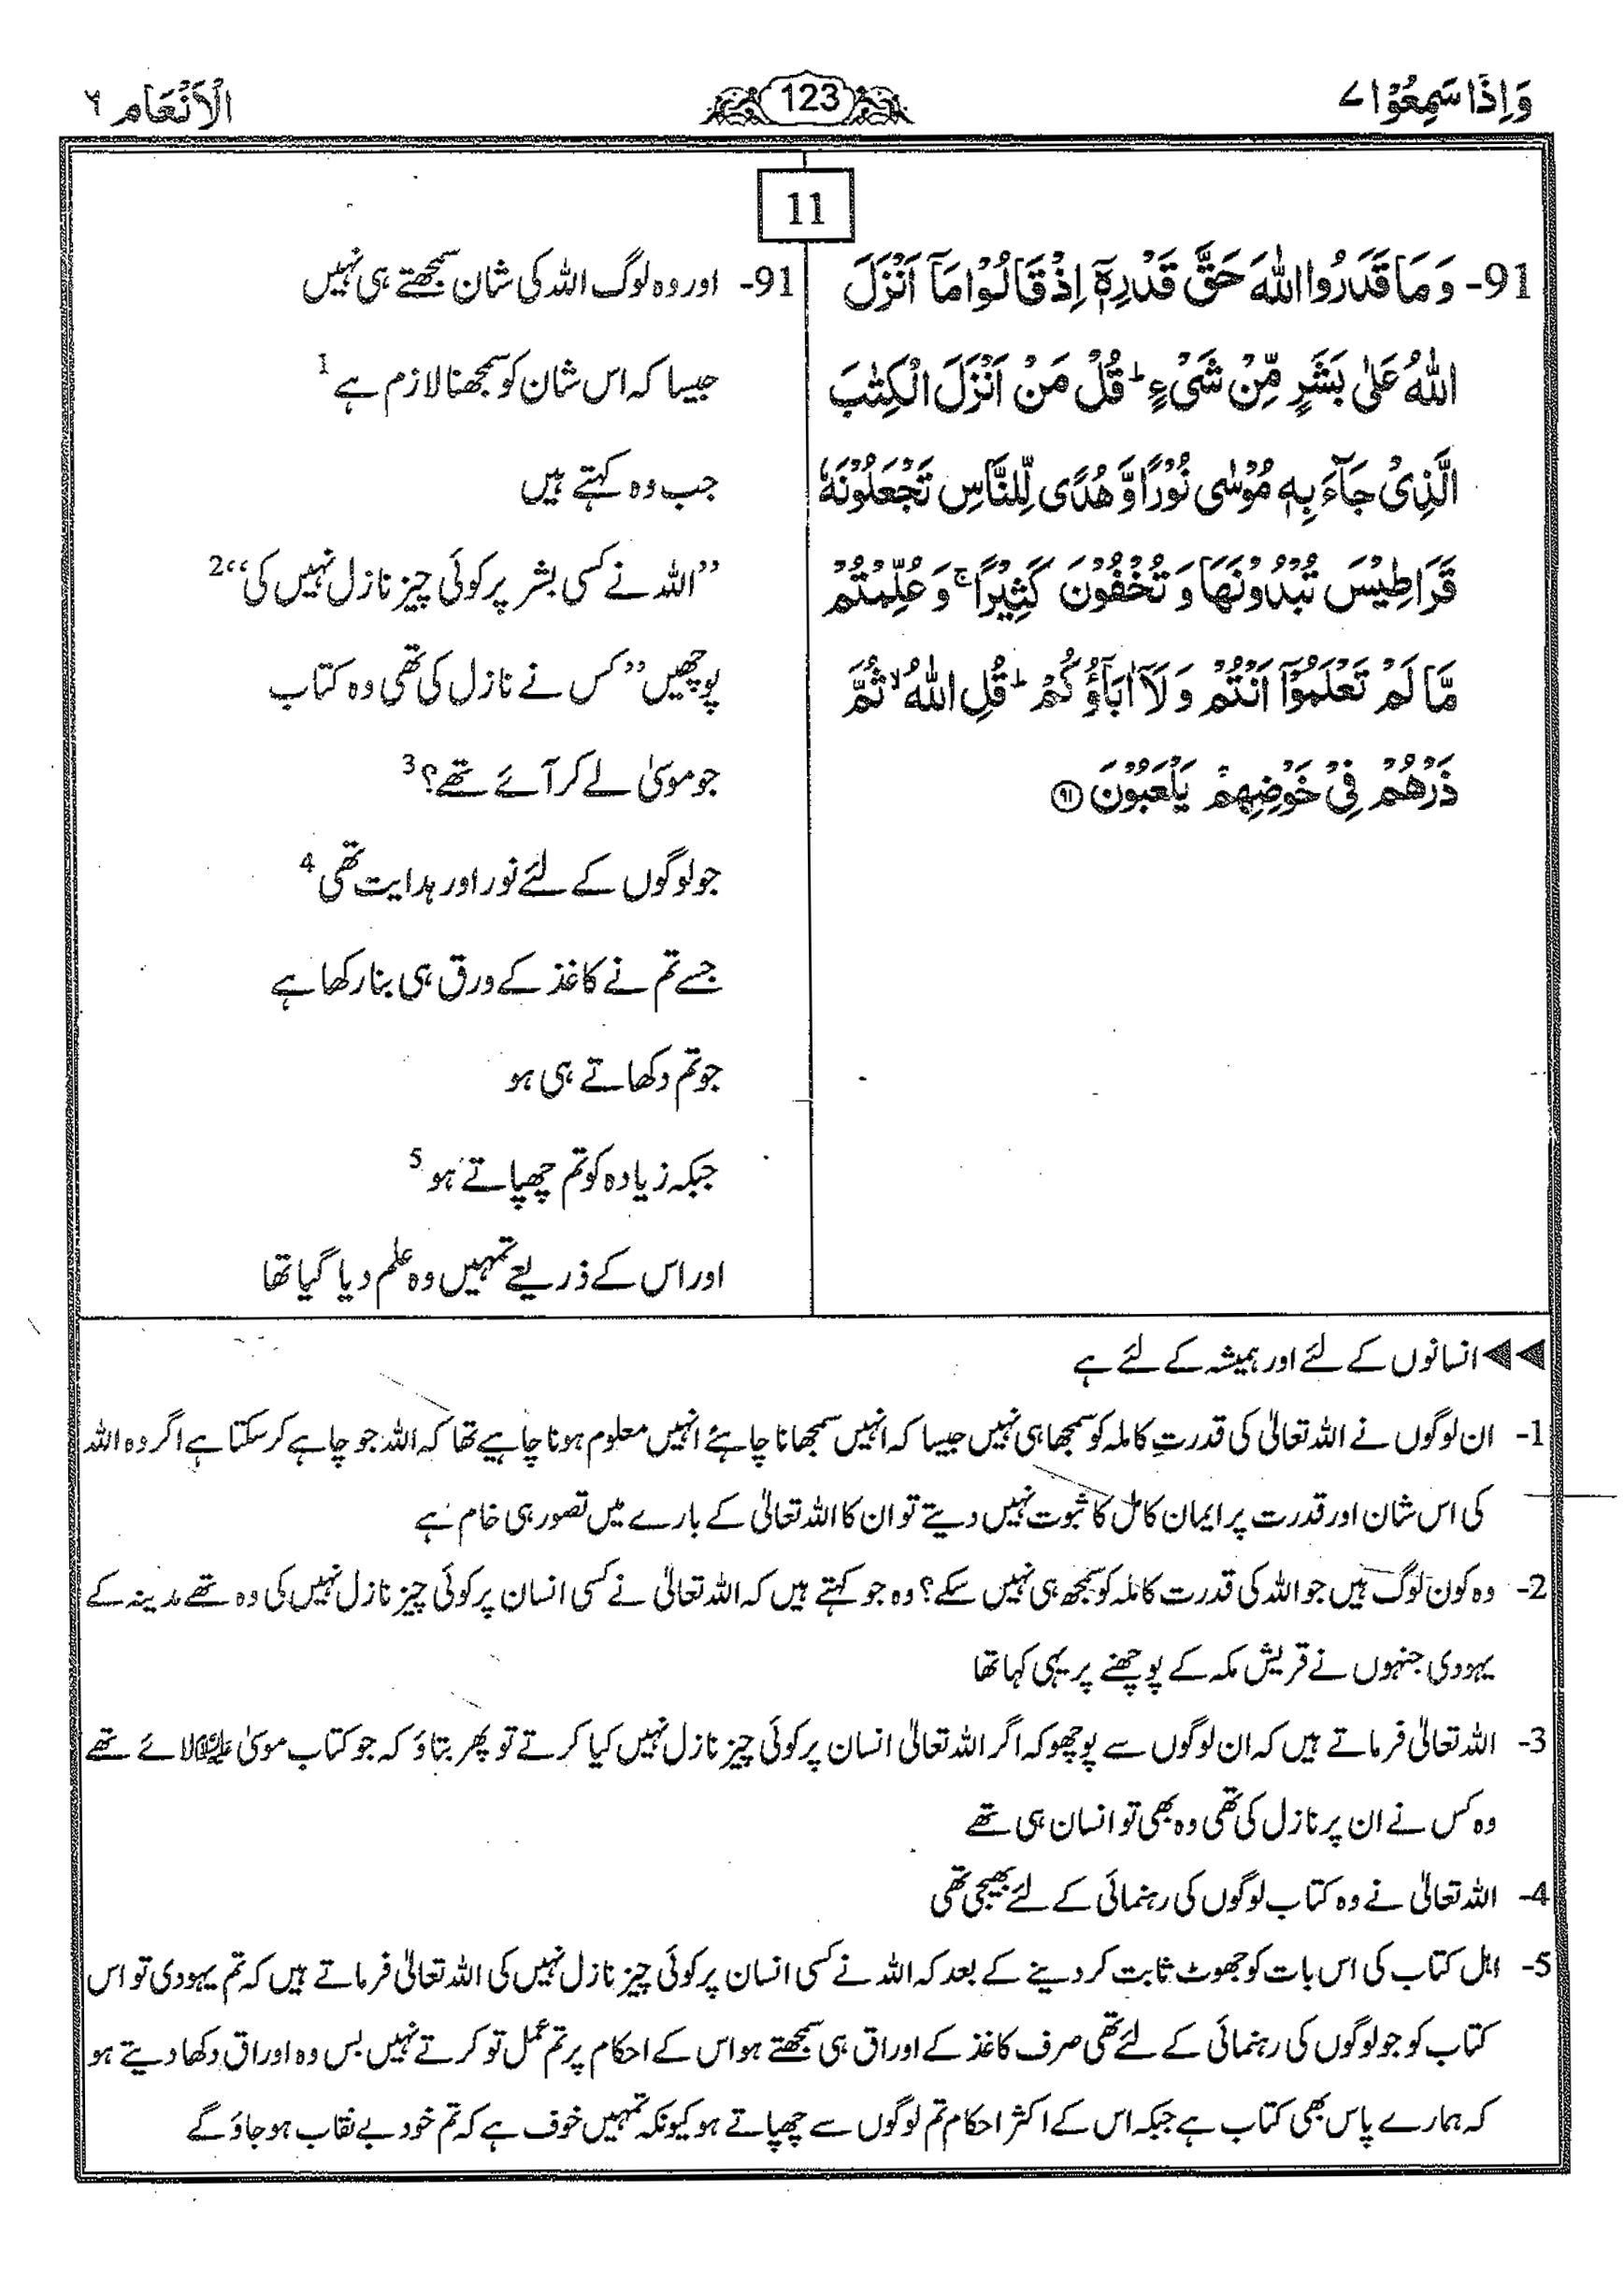 وَاِذَا سَمِعُوْا ۷
123
الْاَنْعَام ۶
11
91- وَمَا قَدَرُوا اللّٰهَ حَقَّ قَدْرِهٖۤ اِذْ قَالُوْا مَاۤ اَنْزَلَ
اللّٰهُ عَلٰى بَشَرٍ مِّنْ شَیْءٍ ؕ قُلْ مَنْ اَنْزَلَ الْكِتٰبَ
الَّذِیْ جَآءَ بِهٖ مُوْسٰى نُوْرًا وَّهُدًى لِّلنَّاسِ تَجْعَلُوْنَهٗ
قَرَاطِیْسَ تُبْدُوْنَهَا وَتُخْفُوْنَ كَثِیْرًا ۚ وَعُلِّمْتُمْ
مَّا لَمْ تَعْلَمُوْۤا اَنْتُمْ وَلَاۤ اٰبَآؤُكُمْ ؕ قُلِ اللّٰهُ ۙ ثُمَّ
ذَرْهُمْ فِیْ خَوْضِهِمْ یَلْعَبُوْنَ ﴿۹۱﴾
91- اور وہ لوگ اللہ کی شان سمجھتے ہی نہیں
جیسا کہ اس شان کو سمجھنا لازم ہے 1
جب وہ کہتے ہیں
”اللہ نے کسی بشر پر کوئی چیز نازل نہیں کی“ 2
پوچھیں ”کس نے نازل کی تھی وہ کتاب
جو موسیٰ لے کر آئے تھے؟ 3
جو لوگوں کے لئے نور اور ہدایت تھی 4
جسے تم نے کاغذ کے ورق ہی بنا رکھا ہے
جو تم دکھاتے ہی ہو
جبکہ زیادہ کو تم چھپاتے ہو 5
اور اس کے ذریعے تمہیں وہ علم دیا گیا تھا
◀◀ انسانوں کے لئے اور ہمیشہ کے لئے ہے
1- ان لوگوں نے اللہ تعالیٰ کی قدرتِ کاملہ کو سمجھا ہی نہیں جیسا کہ انہیں سمجھانا چاہئے انہیں معلوم ہونا چاہیے تھا کہ اللہ جو چاہے کر سکتا ہے اگر وہ اللہ
کی اس شان اور قدرت پر ایمان کامل کا ثبوت نہیں دیتے تو ان کا اللہ تعالیٰ کے بارے میں تصور ہی خام ہے
2- وہ کون لوگ ہیں جو اللہ کی قدرت کاملہ کو سمجھ ہی نہیں سکے؟ وہ جو کہتے ہیں کہ اللہ تعالیٰ نے کسی انسان پر کوئی چیز نازل نہیں کی وہ تھے مدینہ کے
یہودی جنہوں نے قریش مکہ کے پوچھنے پر یہی کہا تھا
3- اللہ تعالیٰ فرماتے ہیں کہ ان لوگوں سے پوچھو کہ اگر اللہ تعالیٰ انسان پر کوئی چیز نازل نہیں کیا کرتے تو پھر بتاؤ کہ جو کتاب موسیٰ علیہ السلام لائے تھے
وہ کس نے ان پر نازل کی تھی وہ بھی تو انسان ہی تھے
4- اللہ تعالیٰ نے وہ کتاب لوگوں کی رہنمائی کے لئے بھیجی تھی
5- اہل کتاب کی اس بات کو جھوٹ ثابت کر دینے کے بعد کہ اللہ نے کسی انسان پر کوئی چیز نازل نہیں کی اللہ تعالیٰ فرماتے ہیں کہ تم یہودی تو اس
کتاب کو جو لوگوں کی رہنمائی کے لئے تھی صرف کاغذ کے اوراق ہی سمجھتے ہو اس کے احکام پر تم عمل تو کرتے نہیں بس وہ اوراق دکھا دیتے ہو
کہ ہمارے پاس بھی کتاب ہے جبکہ اس کے اکثر احکام تم لوگوں سے چھپاتے ہو کیونکہ تمہیں خوف ہے کہ تم خود بے نقاب ہو جاؤ گے